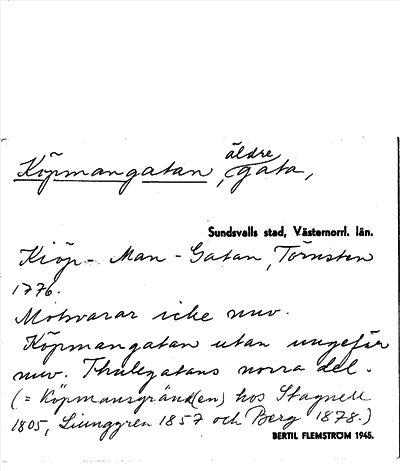 Köpmangatan, äldre gata,
Sundsvalls stad, Västernorrl. län.
Kiöp-Man-Gatan, Törnsten
1776.
Motsvarar icke nuv.
Köpmangatan utan ungefär
nuv. Thulegatans norra del.
(= Köpmansgränd(en) hos Stagnell
1805, Liunggren 1857 och Berg 1878.)
BERTIL FLEMSTRÖM 1945.